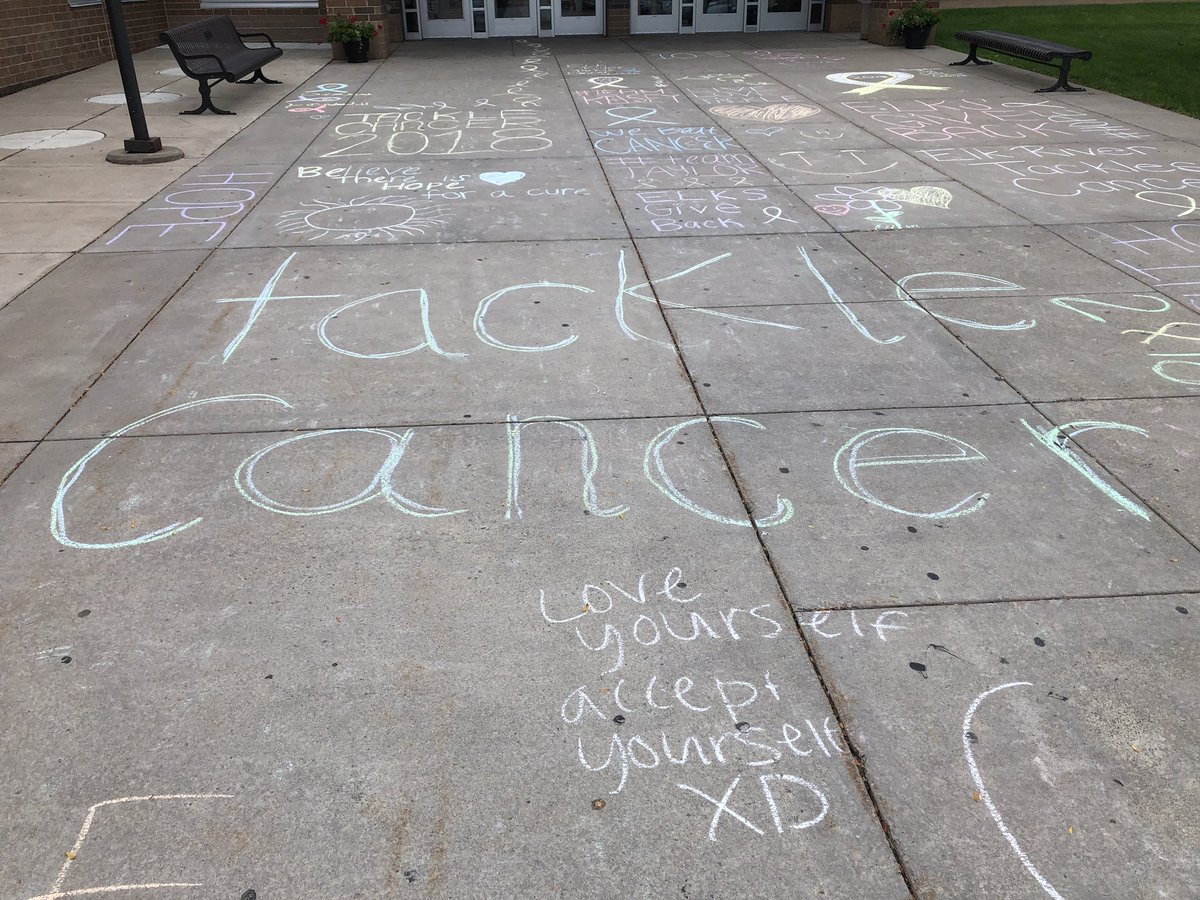 TACKLE
CANCER
2018
Believe
there is
Hope
for a cure
HOPE
We Battle
CANCER
#Team
TAYLOR
ELKS
Give
Back
ELKS
GIVE
BACK
Elk River
Tackles
Cancer
tackle
Cancer
Love
yourself
accept
yourself
XD